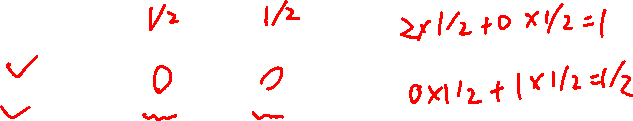 1/2 1/2 2×1/2+0×1/2=1
✓ 0 0 0×1/2+1×1/2=1/2
✓